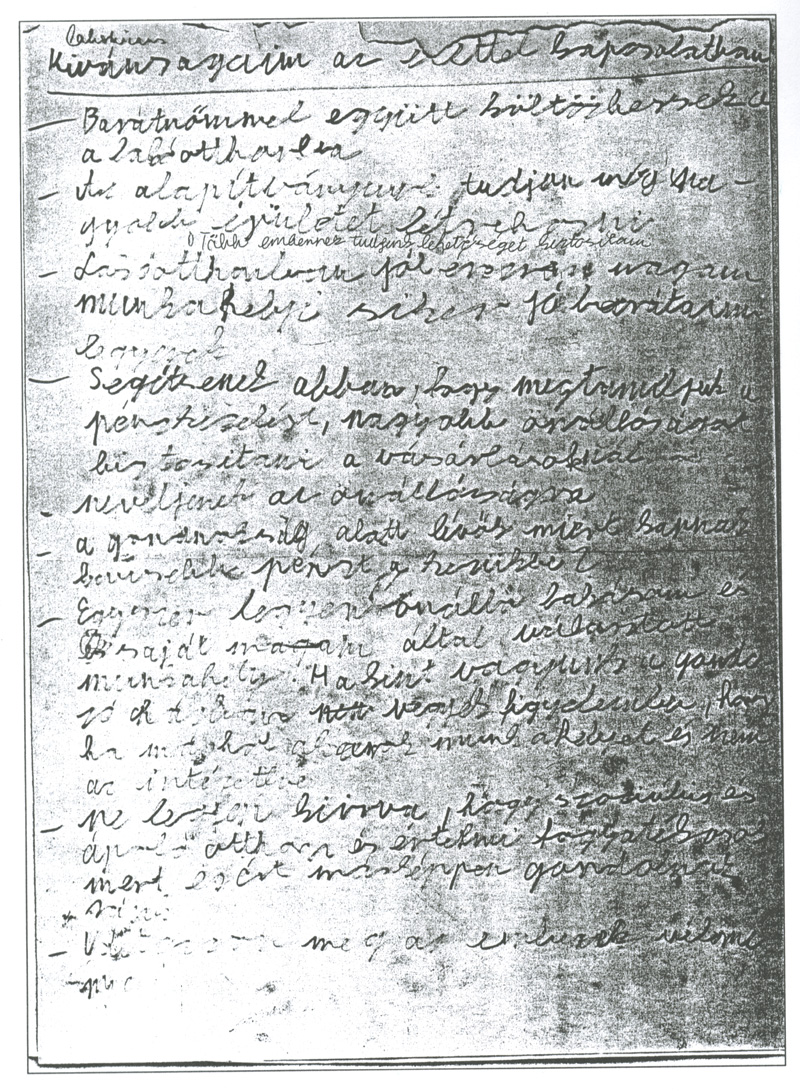 Kívánságaim az élettel kapcsolatban
- Barátnőmmel együtt költözhessek
a lakóotthonba
- Az alapítványunk tudjon még na-
gyobb épületet létrehozni
Több embernek tudjunk lehetőséget biztosítani
- Lakóotthonban jól érezzem magam
munkahelyi siker jó barátaim
legyenek
- Segítsenek abban, hogy megtanuljuk a
pénzkezelést, nagyobb önállóságot
biztosítani a vásárlásoknál
- neveljenek az önállóságra
- a gondnokság alatt lévők miért kapnak
kevesebb pénzt a kezükbe
- Egyszer legyen önálló lakásom és
saját magam által választott
munkahely. Ha kint vagyunk a
vegyék figyelembe,
ha máshol akarok munkahelyet és nem
az intézetbe
- ne legyen kiírva, hogy szociális és
ápoló otthon és értelmi fogyatékosok
mert ezért másképpen gondolnak
- meg az emberek vélemé-